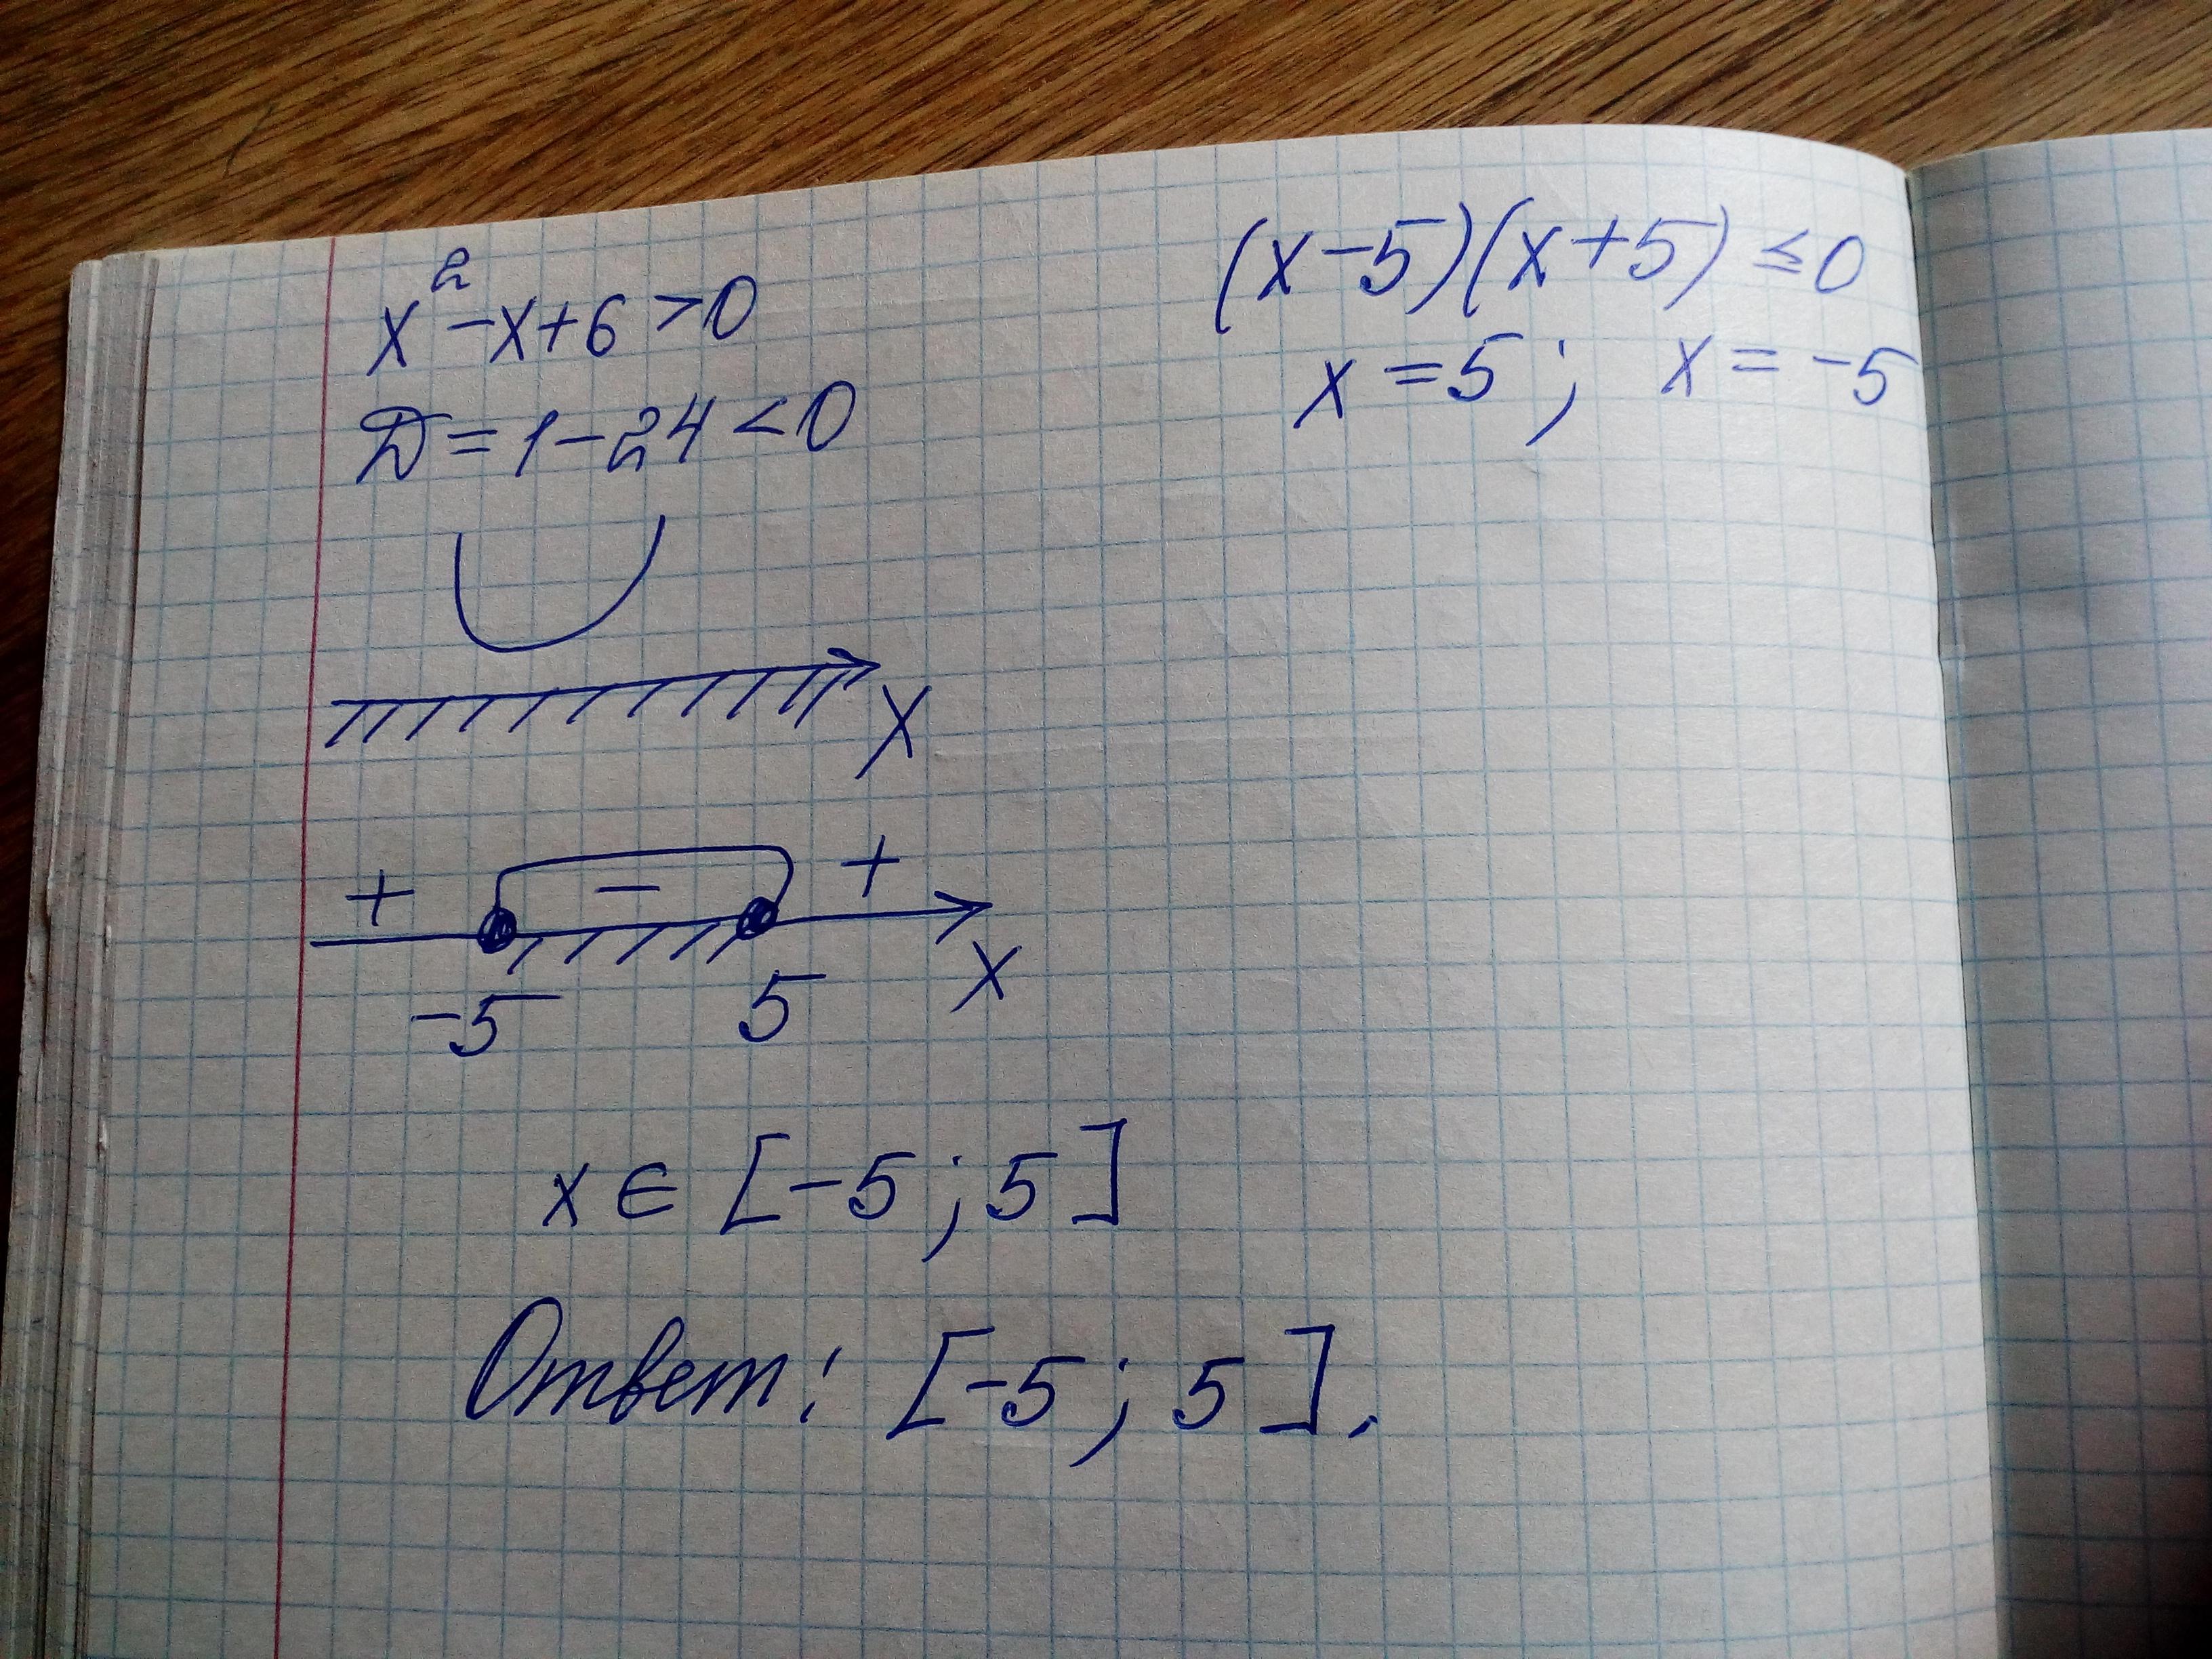 x² - x + 6 > 0
D = 1 - 24 < 0
x
(x - 5)(x + 5) ≤ 0
x = 5; x = -5
+ - +
-5 5 x
x ∈ [-5; 5]
Ответ: [-5; 5].